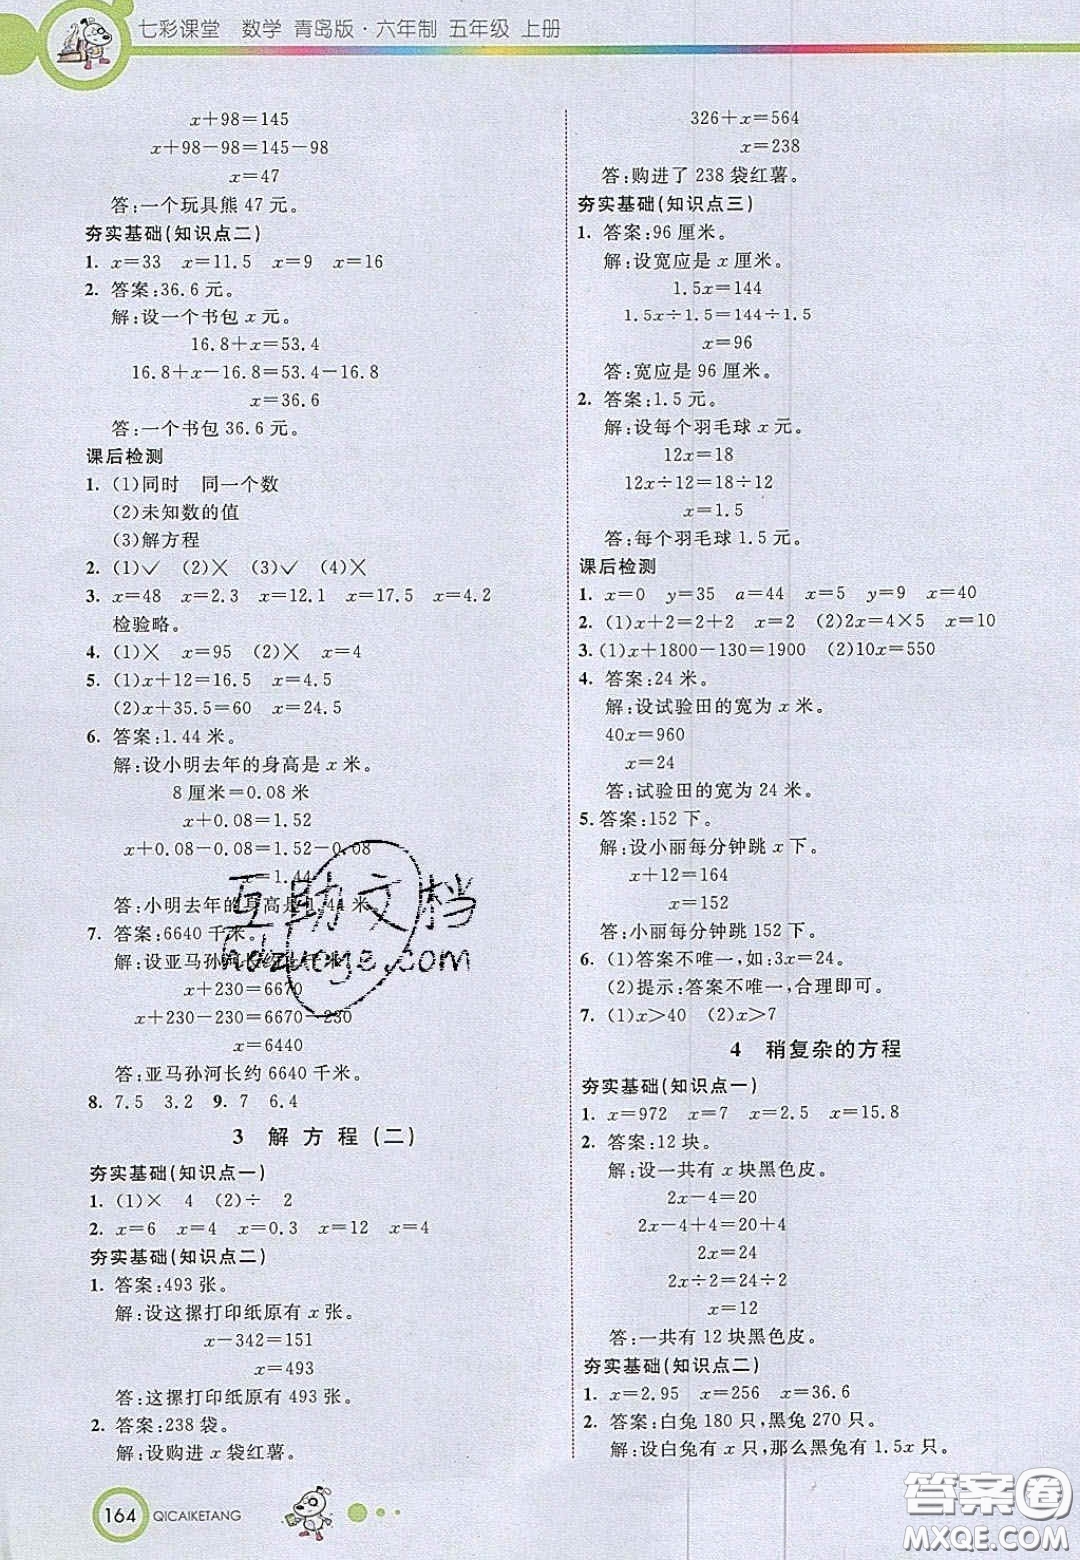 七彩课堂 数学 青岛版·六年制 五年级 上册
x+98=145
x+98-98=145-98
x=47
答:一个玩具熊 47 元。
夯实基础(知识点二)
1. x=33 x=11.5 x=9 x=16
2. 答案:36.6 元。
解:设一个书包 x 元。
16.8+x=53.4
16.8+x-16.8=53.4-16.8
x=36.6
答:一个书包 36.6 元。
课后检测
1. (1)同时 同一个数
(2)未知数的值
(3)解方程
2. (1)✓ (2)✕ (3)✓ (4)✕
3. x=48 x=2.3 x=12.1 x=17.5 x=4.2
检验略。
4. (1)✕ x=95 (2)✕ x=4
5. (1)x+12=16.5 x=4.5
(2)x+35.5=60 x=24.5
6. 答案:1.44 米。
解:设小明去年的身高是 x 米。
8 厘米=0.08 米
x+0.08=1.52
x+0.08-0.08=1.52-0.08
x=1.44
答:小明去年的身高是 1.44 米。
7. 答案:6640 千米。
解:设亚马孙河长约 x 千米。
x+230=6670
x+230-230=6670-230
x=6440
答:亚马孙河长约 6640 千米。
8. 7.5 3.2 9. 7 6.4
3 解方程(二)
夯实基础(知识点一)
1. (1)× 4 (2)÷ 2
2. x=6 x=4 x=0.3 x=12 x=4
夯实基础(知识点二)
1. 答案:493 张。
解:设这摞打印纸原有 x 张。
x-342=151
x=493
答:这摞打印纸原有 493 张。
2. 答案:238 袋。
解:设购进 x 袋红薯。
164 QICAIKETANG
326+x=564
x=238
答:购进了 238 袋红薯。
夯实基础(知识点三)
1. 答案:96 厘米。
解:设宽应是 x 厘米。
1.5x=144
1.5x÷1.5=144÷1.5
x=96
答:宽应是 96 厘米。
2. 答案:1.5 元。
解:设每个羽毛球 x 元。
12x=18
12x÷12=18÷12
x=1.5
答:每个羽毛球 1.5 元。
课后检测
1. x=0 y=35 a=44 x=5 y=9 x=40
2. (1)x+2=2+2 x=2 (2)2x=4×5 x=10
3. (1)x+1800-130=1900 (2)10x=550
4. 答案:24 米。
解:设试验田的宽为 x 米。
40x=960
x=24
答:试验田的宽为 24 米。
5. 答案:152 下。
解:设小丽每分钟跳 x 下。
x+12=164
x=152
答:小丽每分钟跳 152 下。
6. (1)答案不唯一,如:3x=24。
(2)提示:答案不唯一,合理即可。
7. (1)x>40 (2)x>7
4 稍复杂的方程
夯实基础(知识点一)
1. x=972 x=7 x=2.5 x=15.8
2. 答案:12 块。
解:设一共有 x 块黑色皮。
2x-4=20
2x-4+4=20+4
2x=24
2x÷2=24÷2
x=12
答:一共有 12 块黑色皮。
夯实基础(知识点二)
1. x=2.95 x=256 x=36.6
2. 答案:白兔 180 只,黑兔 270 只。
解:设白兔有 x 只,那么黑兔有 1.5x 只。
互助文档
hdzuoye.com
答案圈
MXQE.COM